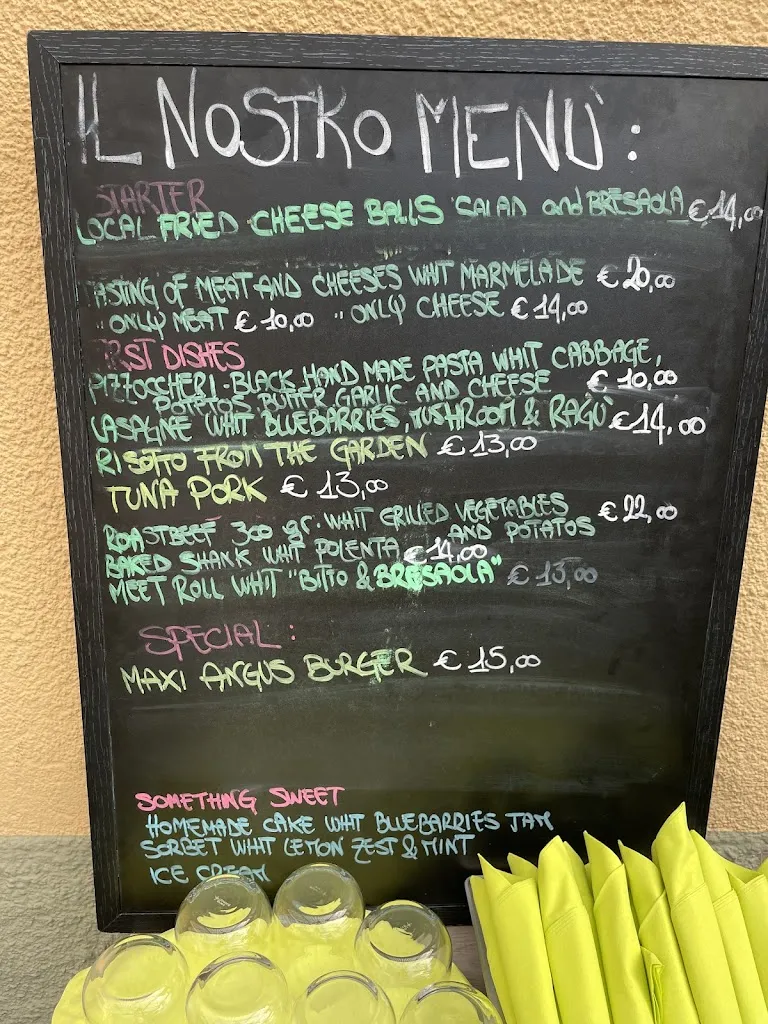 IL NOSTRO MENÙ:
STARTER
LOCAL FRIED CHEESE BALLS SALAD and BRESAOLA € 14,00
TASTING OF MEAT AND CHEESES WHIT MARMELADE € 20,00
" ONLY MEAT € 10,00 " ONLY CHEESE € 14,00
FIRST DISHES
PIZZOCCHERI - BLACK HAND MADE PASTA WHIT CABBAGE,
POTATOS BUTTER GARLIC AND CHEESE € 10,00
LASAGNE WHIT BLUEBARRIES, MUSHROOM & RAGÙ € 14,00
RISOTTO FROM THE GARDEN € 13,00
TUNA PORK € 13,00
ROASTBEEF 300 gr. WHIT GRILLED VEGETABLES € 22,00
AND POTATOS
BAKED SHANK WHIT POLENTA € 14,00
MEET ROLL WHIT "BITTO & BRESAOLA" € 13,00
SPECIAL:
MAXI ANGUS BURGER € 15,00
SOMETHING SWEET
HOMEMADE CAKE WHIT BLUEBARRIES JAM
SORBET WHIT LEMON ZEST & MINT
ICE CREAM